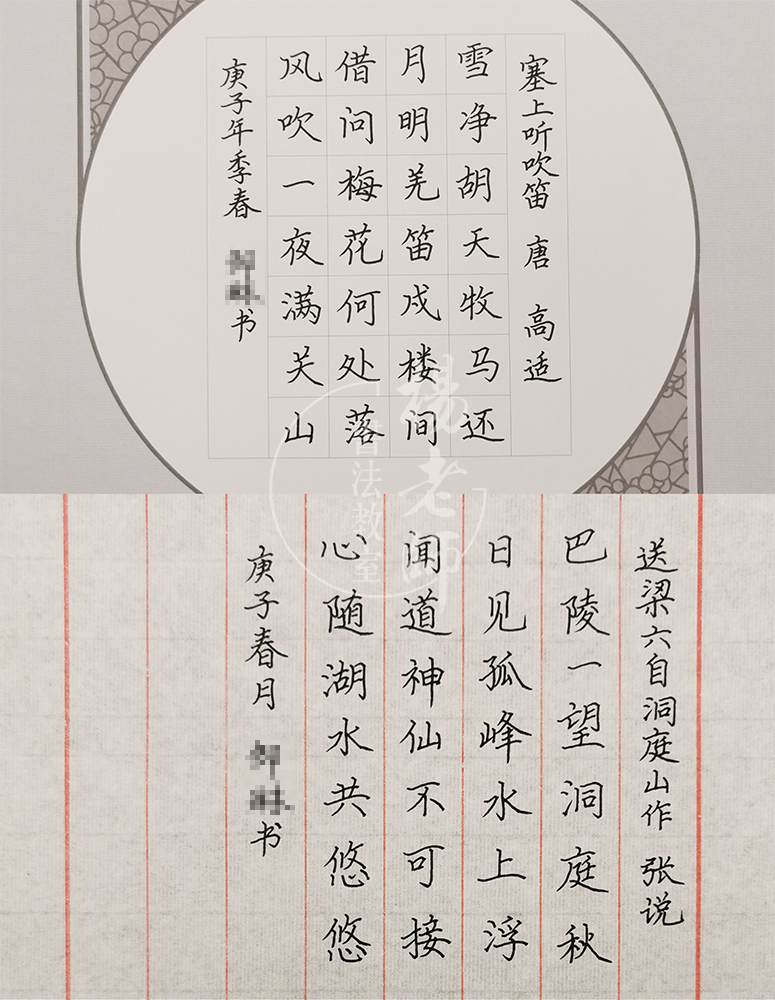 塞上听吹笛 唐 高适
雪净胡天牧马还
月明羌笛戍楼间
借问梅花何处落
风吹一夜满关山
庚子年季春 书
杨老师
书法教室
送梁六自洞庭山作 张说
巴陵一望洞庭秋
日见孤峰水上浮
闻道神仙不可接
心随湖水共悠悠
庚子春月 书